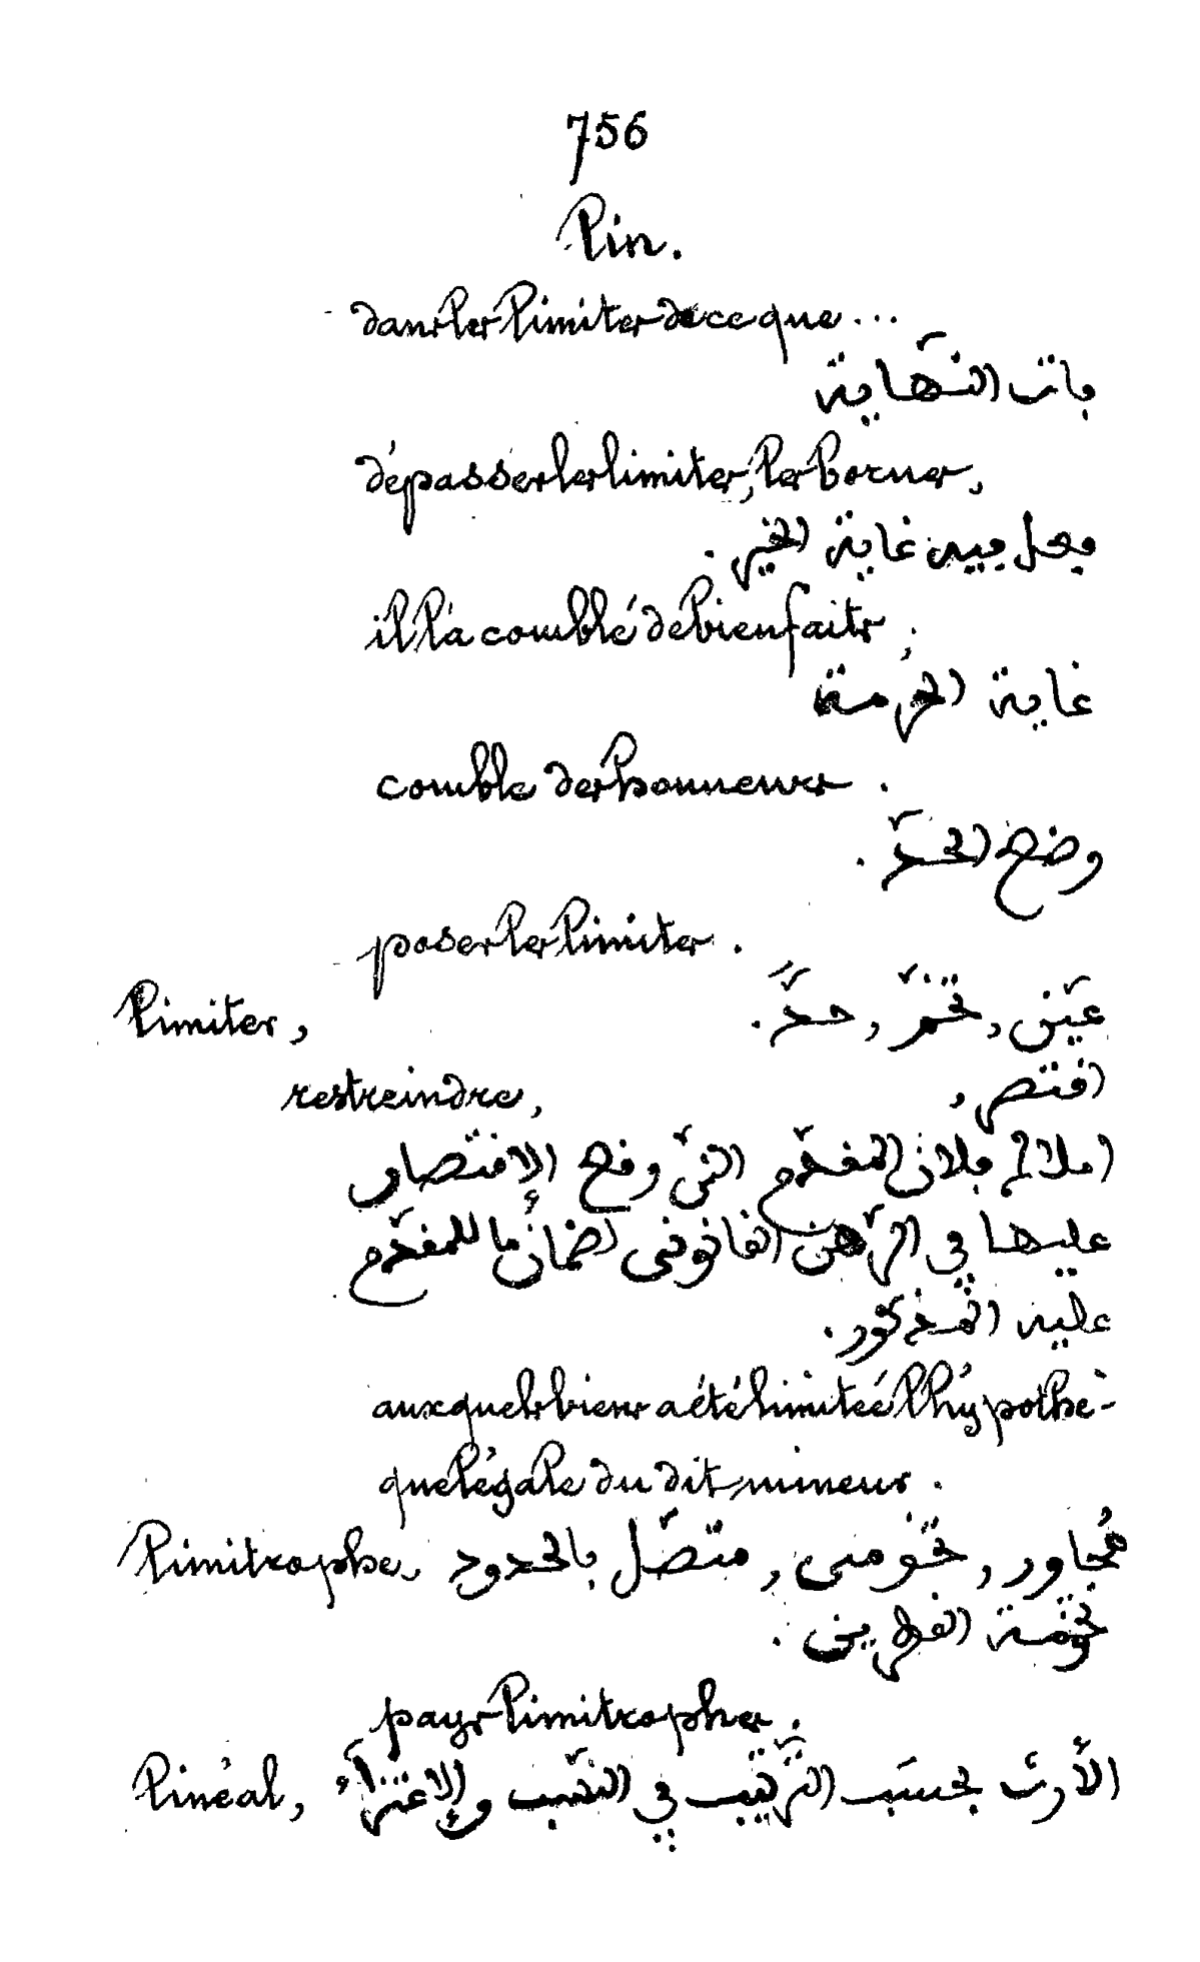 756
Lin.
dans les limites de ce que...
فات النّهاية
dépasser les limites, les bornes,
فعل فيه غاية الخير.
il l'a comblé de bienfaits;
غاية الحرمة
comble des honneurs.
وضع الحدّ.
poser les limites.
Limiter, عيّن, تخّم, حدّد.
restreindre, اقتصر,
املاك فلان المقدّم التي وقع الإقتصار
عليها في الرّهن القانوني لضمان ما للمقدّم
عليه المذكور.
auxquels biens a été limitée l'hypothè-
que légale du dit mineur.
Limitrophe, مُجاور, تخومي, متصّل بالحدود
تخومة القطرين.
pays limitrophes.
Linéal, الأرث بحسب التّرتيب في النّسب والإعتزاء